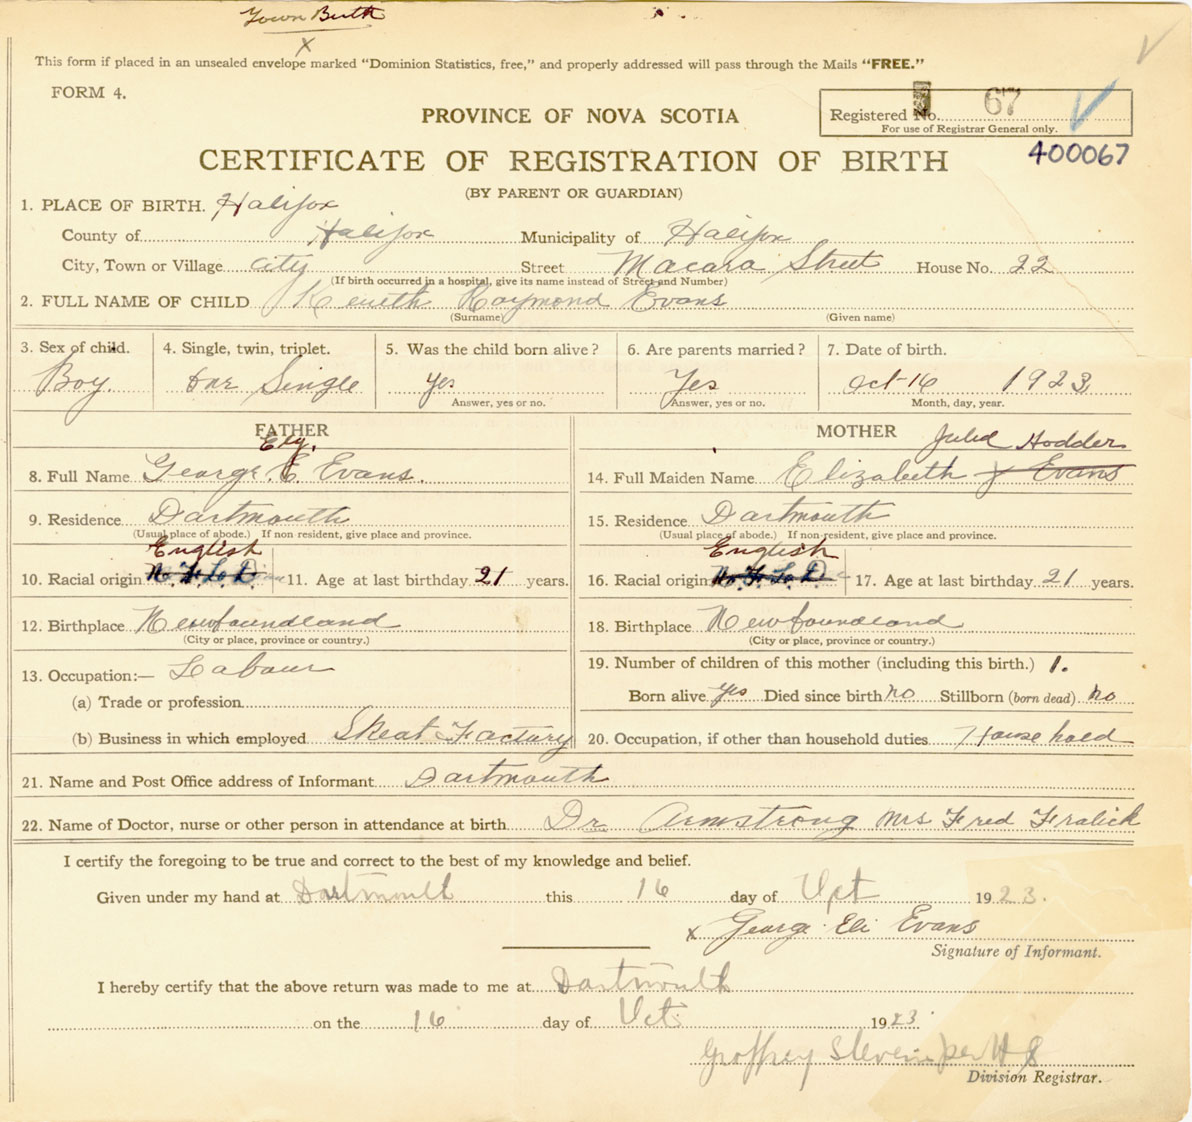 Town Birth
x
This form if placed in an unsealed envelope marked "Dominion Statistics, free," and properly addressed will pass through the Mails "FREE."
FORM 4.
PROVINCE OF NOVA SCOTIA
Registered No. 67
For use of Registrar General only.
400067
CERTIFICATE OF REGISTRATION OF BIRTH
(BY PARENT OR GUARDIAN)
1. PLACE OF BIRTH. Halifax
County of Halifax Municipality of Halifax
City, Town or Village City Street Macara Street House No. 22
(If birth occurred in a hospital, give its name instead of Street and Number)
2. FULL NAME OF CHILD Keneth Raymond Evans
(Surname) (Given name)
3. Sex of child. 4. Single, twin, triplet. 5. Was the child born alive? 6. Are parents married? 7. Date of birth.
Boy. One Single Yes Yes Oct-16 1923
Answer, yes or no. Answer, yes or no. Month, day, year.
FATHER
Ely.
8. Full Name George. E. Evans.
9. Residence Dartmouth
(Usual place of abode.) If non-resident, give place and province.
English
10. Racial origin N. F. L. D. 11. Age at last birthday 21 years.
12. Birthplace Newfoundland
(City or place, province or country.)
13. Occupation:— Labour
(a) Trade or profession
(b) Business in which employed Skeat Factory
MOTHER
Hodder
14. Full Maiden Name Elizabeth J Evans
15. Residence Dartmouth
(Usual place of abode.) If non-resident, give place and province.
English
16. Racial origin N. F. L. D. 17. Age at last birthday 21 years.
18. Birthplace Newfoundland
(City or place, province or country.)
19. Number of children of this mother (including this birth.) 1.
Born alive yes Died since birth no Stillborn (born dead) no
20. Occupation, if other than household duties House hold
21. Name and Post Office address of Informant Dartmouth
22. Name of Doctor, nurse or other person in attendance at birth Dr Armstrong Mrs Fred Fralick
I certify the foregoing to be true and correct to the best of my knowledge and belief.
Given under my hand at Dartmouth this 16 day of Oct 1923.
x George Eli Evans
Signature of Informant.
I hereby certify that the above return was made to me at Dartmouth
on the 16 day of Oct. 1923.
Groffrey Stevens per
Division Registrar.